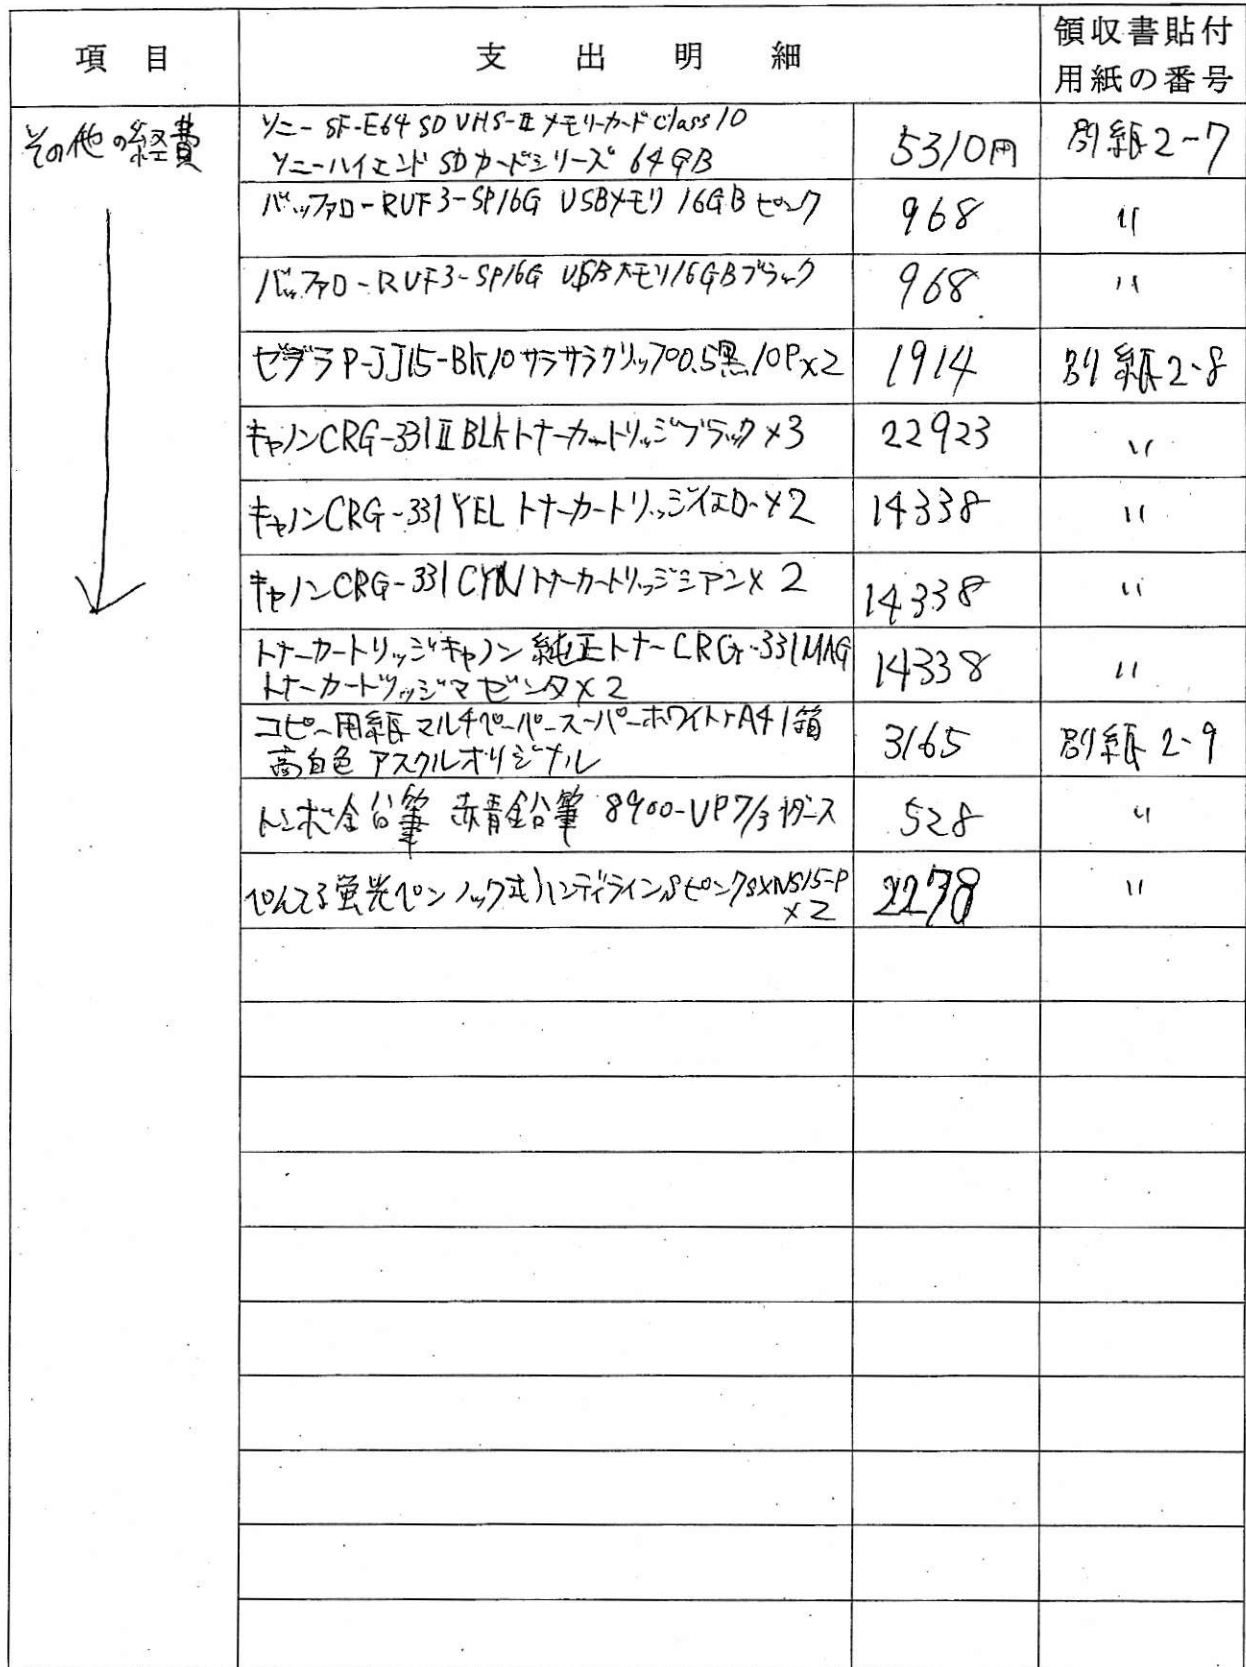 項目 支出明細 領収書貼付
用紙の番号
その他の経費 ソニー SF-E64 SD VHS-II メモリーカード class 10
ソニーハイエンド SDカードシリーズ 64GB 5310円 別紙2-7
バッファローRUF3-SP16G USBメモリ 16GB ピンク 968 〃
バッファローRUF3-SP16G USBメモリ16GBブラック 968 〃
ゼブラP-JJ15-BK10サラサラクリップ0.5黒10P×2 1914 別紙2-8
キャノンCRG-331ⅡBLKトナーカートリッジブラック×3 22923 〃
キャノンCRG-331YEL トナーカートリッジイエロー×2 14338 〃
キャノンCRG-331CYNトナーカートリッジシアン×2 14338 〃
トナーカートリッジキャノン純正トナーCRG-331MAG
トナーカートリッジマゼンタ×2 14338 〃
コピー用紙マルチペーパースーパーホワイト+A4 1箱
高白色アスクルオリジナル 3165 別紙2-9
トンボ鉛筆 赤青鉛筆 8900-VP7/3 1ダース 528 〃
ぺんてる蛍光ペンノック式ハンディラインSピンクSXNS15-P
×2 2278 〃